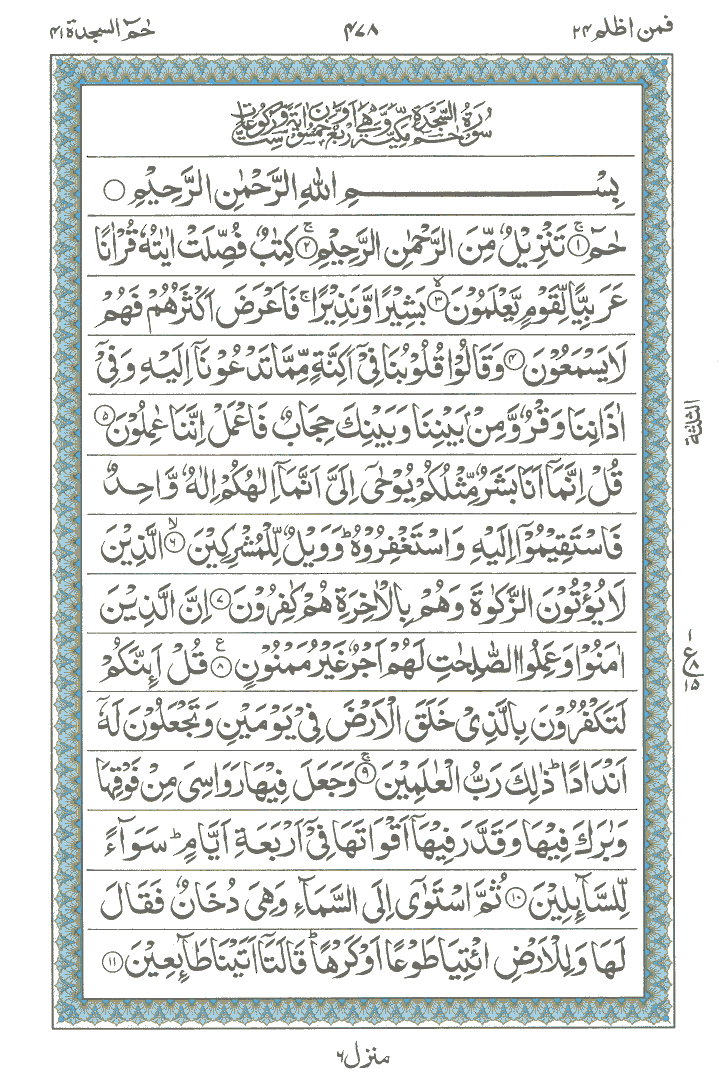 فمن اظلم ٢٤
٤٧٨
حٰمٓ السجدة ٤١
بِسْمِ اللهِ الرَّحْمٰنِ الرَّحِيْمِ ○
حٰمٓ ۚ﴿١﴾ تَنْزِيْلٌ مِّنَ الرَّحْمٰنِ الرَّحِيْمِ ۚ﴿٢﴾ كِتٰبٌ فُصِّلَتْ اٰيٰتُهٗ قُرْاٰنًا
عَرَبِيًّا لِّقَوْمٍ يَّعْلَمُوْنَ ۙ﴿٣﴾ بَشِيْرًا وَّنَذِيْرًا ۚ فَاَعْرَضَ اَكْثَرُهُمْ فَهُمْ
لَا يَسْمَعُوْنَ ﴿٤﴾ وَقَالُوْا قُلُوْبُنَا فِيْٓ اَكِنَّةٍ مِّمَّا تَدْعُوْنَآ اِلَيْهِ وَفِيْٓ
اٰذَانِنَا وَقْرٌ وَّمِنْۢ بَيْنِنَا وَبَيْنِكَ حِجَابٌ فَاعْمَلْ اِنَّنَا عٰمِلُوْنَ ﴿٥﴾
قُلْ اِنَّمَآ اَنَا بَشَرٌ مِّثْلُكُمْ يُوْحٰٓى اِلَيَّ اَنَّمَآ اِلٰهُكُمْ اِلٰهٌ وَّاحِدٌ
فَاسْتَقِيْمُوْٓا اِلَيْهِ وَاسْتَغْفِرُوْهُ ؕ وَوَيْلٌ لِّلْمُشْرِكِيْنَ ۙ﴿٦﴾ الَّذِيْنَ
لَا يُؤْتُوْنَ الزَّكٰوةَ وَهُمْ بِالْاٰخِرَةِ هُمْ كٰفِرُوْنَ ﴿٧﴾ اِنَّ الَّذِيْنَ
اٰمَنُوْا وَعَمِلُوا الصّٰلِحٰتِ لَهُمْ اَجْرٌ غَيْرُ مَمْنُوْنٍ ﴿٨﴾ ع قُلْ اَئِنَّكُمْ
لَتَكْفُرُوْنَ بِالَّذِيْ خَلَقَ الْاَرْضَ فِيْ يَوْمَيْنِ وَتَجْعَلُوْنَ لَهٗٓ
اَنْدَادًا ؕ ذٰلِكَ رَبُّ الْعٰلَمِيْنَ ۚ﴿٩﴾ وَجَعَلَ فِيْهَا رَوَاسِيَ مِنْ فَوْقِهَا
وَبٰرَكَ فِيْهَا وَقَدَّرَ فِيْهَآ اَقْوَاتَهَا فِيْٓ اَرْبَعَةِ اَيَّامٍ ؕ سَوَآءً
لِّلسَّآئِلِيْنَ ﴿١٠﴾ ثُمَّ اسْتَوٰٓى اِلَى السَّمَآءِ وَهِيَ دُخَانٌ فَقَالَ
لَهَا وَلِلْاَرْضِ ائْتِيَا طَوْعًا اَوْ كَرْهًا ؕ قَالَتَآ اَتَيْنَا طَآئِعِيْنَ ﴿١١﴾
الثلثة
ع ٨ ١٥
منزل ٦